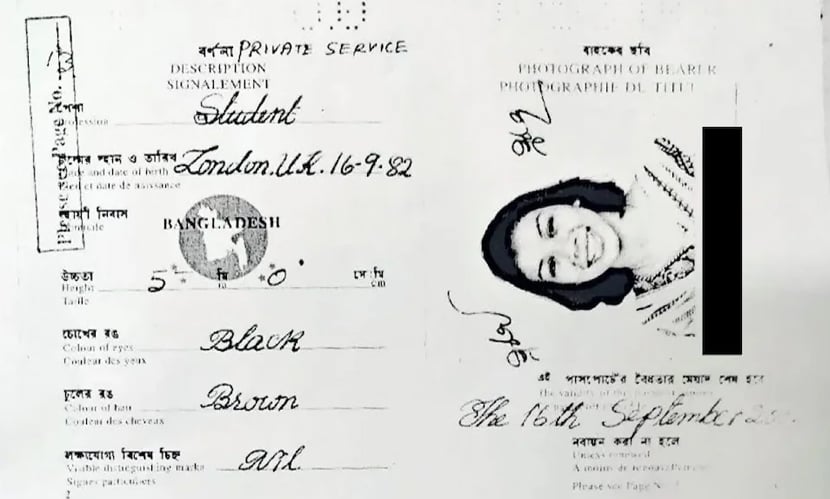 Please see Page No.
বর্ণনা PRIVATE SERVICE
DESCRIPTION
SIGNALEMENT
পেশা
Profession
Student
জন্মের স্থান ও তারিখ
Place and date of birth
Lieu et date de naissance
London. U.K. 16-9-82
স্থায়ী নিবাস
Domicile
BANGLADESH
উচ্চতা
Height
Taille
5 মি 0 সে: মি
m cm
চোখের রঙ
Colour of eyes
Couleur des yeux
Black
চুলের রঙ
Colour of hair
Couleur des cheveux
Brown
লক্ষ্যযোগ্য বিশেষ চিহ্ন
Visible distinguishing marks
Signes particuliers
Nil
2
বাহকের ছবি
PHOTOGRAPH OF BEARER
PHOTOGRAPHIE DU TITUL
এই পাসপোর্টের বৈধতার মেয়াদ শেষ হবে
The validity of this passport expires
The 16th September
নবায়ন করা না হলে
Unless renewed
A moins de renouvellement
Please see Page N